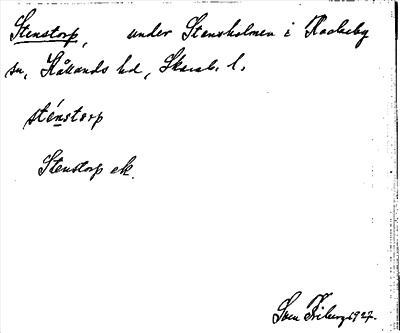 Stenstorp, under Stenxholmen i Rackeby
sn, Kållands hd, Skarab. l.
sténstorp
Stenstorp ek.
Sven Friberg 1927.